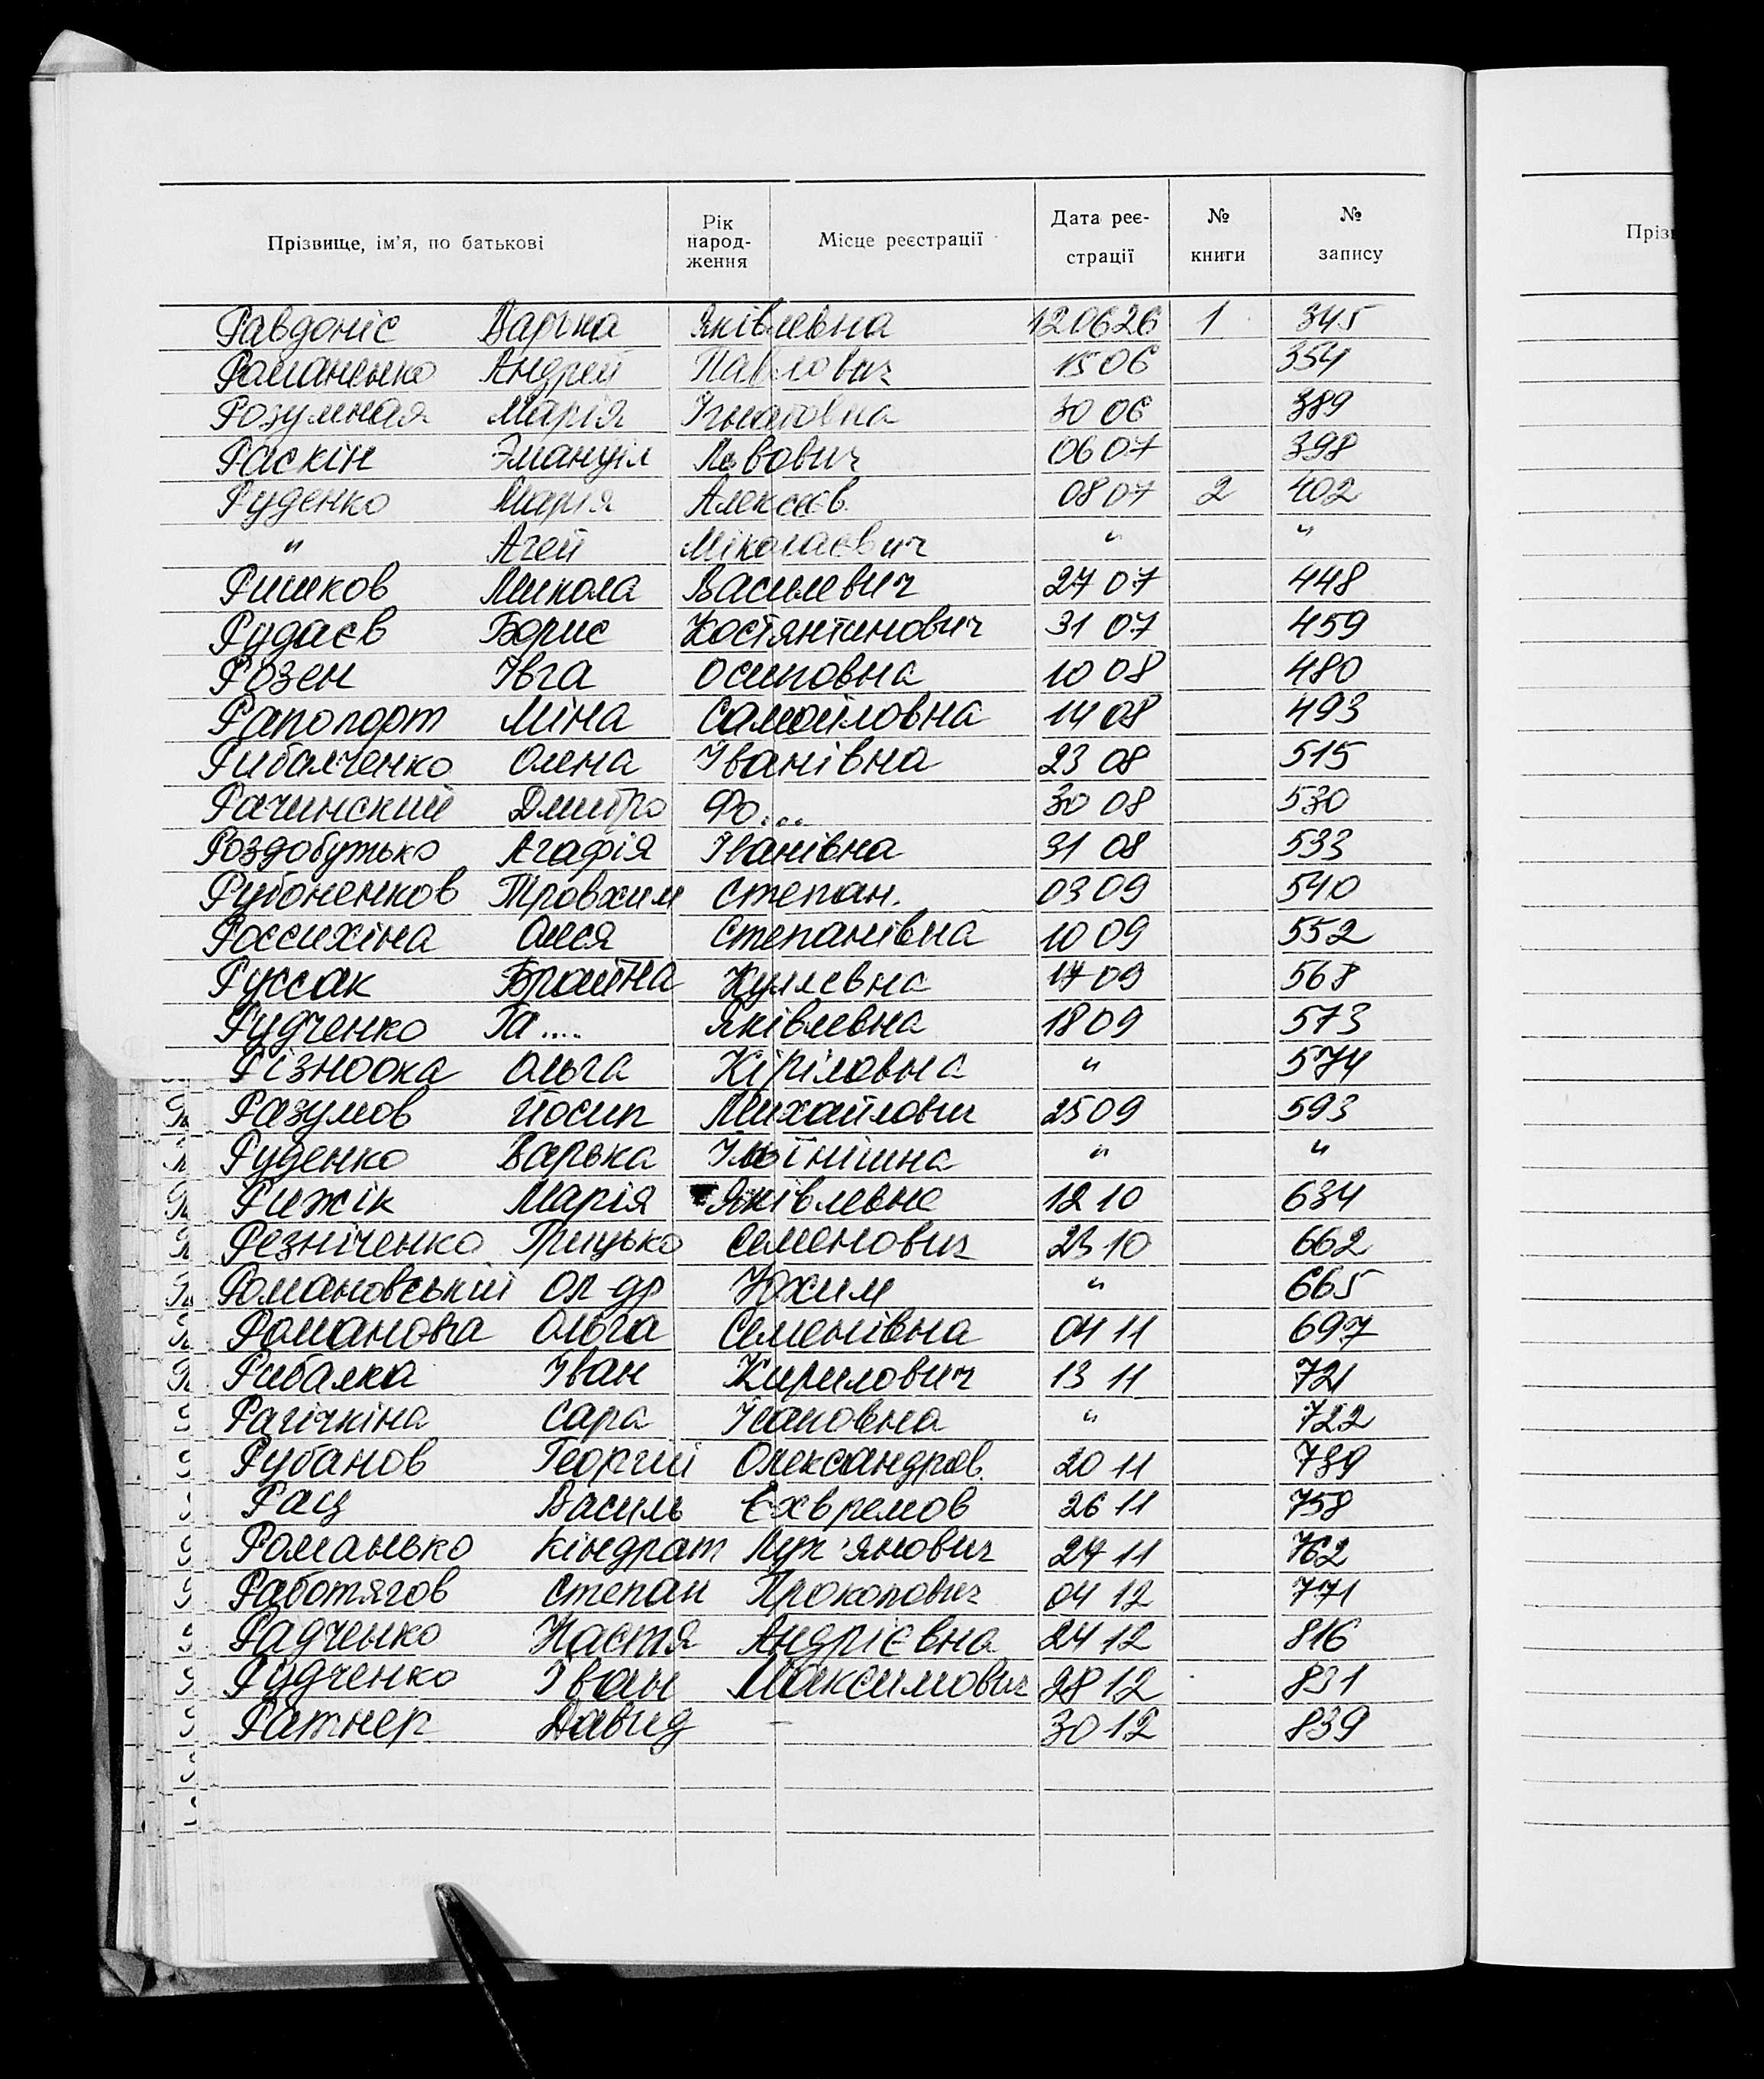 Прізвище, ім'я, по батькові Рік народ- ження Місце реєстрації Дата реє- страції № книги № запису
Прізв
Равдоніс Варька Яківлевна 120626 1 345
Романенко Андрей Павлович 15 06 354
Розумная Марія Ігнатовна 30 06 389
Раскін Эмануіл Львович 06 07 398
Руденко Марія Алексєєв. 08 07 2 402
" Агей Міколаєвич " "
Ришков Микола Василевич 27 07 448
Рудаєв Борис Костянтинович 31 07 459
Розен Івга Осиповна 10 08 480
Рапопорт Міна Самойловна 14 08 493
Рибалченко Олена Іванівна 23 08 515
Рачинский Дмитро Фо... 30 08 530
Роздобутько Агафія Іванівна 31 08 533
Рубоненков Тровхим Степан. 03 09 540
Россихіна Олеся Степанівна 10 09 552
Руссак Брайна 17 09 568
Рудченко Га .... Яківлевна 18 09 573
Різноока Ольга Кірілавна " 574
Разумов Йосип Михайлович 25 09 593
Руденко Варька Ільїнішна " "
Рижік Марія Яківлевна 12 10 634
Резніченко Грицько Семенович 23 10 662
Романовський Ол-др Юхим " 665
Романова Ольга Семенівна 04 11 697
Рибалка Іван Кирилович 13 11 721
Рагічкіна Сара Ісаковна " 722
Рубанов Георгій Олександров. 20 11 739
Рац Василь Єхвремов 26 11 758
Романько Кіндрат Лук'янович 27 11 762
Работягов Степан Прокопович 04 12 771
Радченко Настя Андрієвна 24 12 816
Рудченко Іван Максимович 28 12 831
Ратнер Давид - 30 12 839